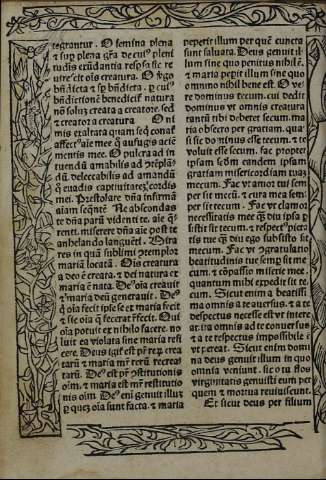 tegrantur. O femina plena
& sup̄ plena grã de cuiꝰ pleni
tudīs exūdantia respsa sic re
uirescit oīs creatura. O v̄go
bn̄dicta & sꝑ bn̄dicta. ꝑ cuiꝰ
bn̄dictionē benedicit natura
nō solū creata a creatore. sed
& creator a creatura. O ni
mis exaltata quam seq̄ conaꝉ
affectꝰ aīe mee q̄ aufugis aciē
mentis mee. O pulcra ad in
tuendū amabilis ad
dū. delectabilis ad amandū
q̄ euadis captiuitatē cordis
mei. Prestolare dn̄a infirmā
aīam seq̄ntē te. Ne abscondas
te dn̄a parū videnti te. aīe q̄
renti. miserere dn̄a aīe post te
anhelando languēti. Mira
res in quā sublimi
mariā locatā. Oīs creatura
a deo ē creata. & dei natura ex
maria ē nata. Deꝰ oīa creauit
& maria deū generauit. Deꝰ
q̄ oīa fecit ipse se ex maria fecit
& sic oīa q̄ fecerat refecit. Qui
oīa potuit ex nihilo facere. no
luit ea violata sine maria refi
cere. Deus igit̉ est pr̄ rerū crea
tarū & maria mr̄ rerū recrea
tarū. Deꝰ est pr̄ ꝯstitutionis
oīm. & maria est mr̄ restitutio
nis oīm. Deꝰ eni genuit illū
ꝑ quē oīa sunt facta. & maria
peperit illum per quē cuncta
sunt saluata. Deus genuit il
lum sine quo penitus nihil ē.
& maria pepit illum sine quo
omnino nihil bene est. O ve
re dominus tecum. cui dedit
dominus vt omnis creatura
tantū tibi deberet secum. ma
ria obsecro per gratiam. qua
si sic dominus esse tecum. & te
voluit esse secum. fac propter
ipsam scdm eandem ipsam
gratiam misericordiam tuā
mecum. Fac vt amor tui sem
per sit mecū. & cura mea sem
per sit tecum. Fac vt clamor
necessitatis mee q̄diu ipsa p̄
sistit sit tecum. & respectꝰ pie
tis tue q̄diu ego subsisto sit
mecum. Fac vt ꝯgratulatio
beatitudinis tue semꝑ sit me
cum. & cōpassio miserie mee.
quantum mihi expedit sit te
cum. Sicut enim o beatissi
ma omnis a te auersus. & a te
despectus necesse est vt intere
at. ita omnis ad te conuersus
& a te respectus impossibile ē
vt pereat. Sicut enim domi
nꝰ deus genuit illum in quo
omnia veniunt. sic o tu flos
virginitatis genuisti eum per
quem & mortua reuiuiscunt.
Et sicut deus per filium